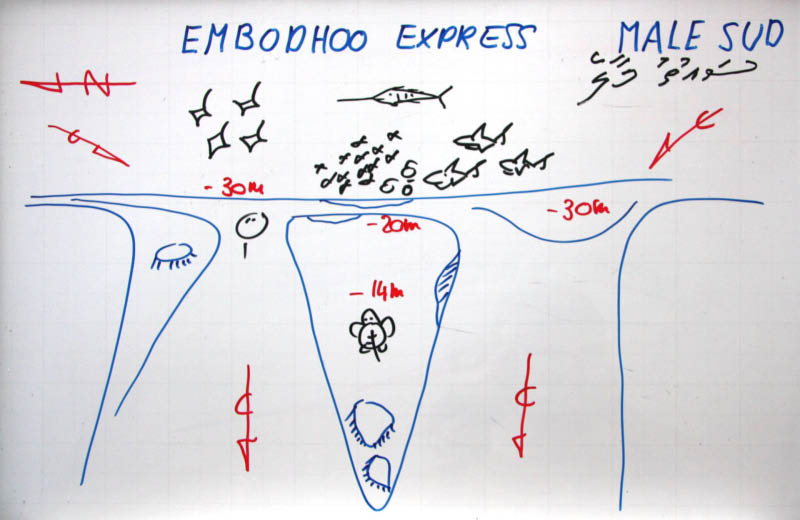 EMBODHOO EXPRESS MALE SUD
N
C
C
-30m
-30m
-20m
-14m
C
C